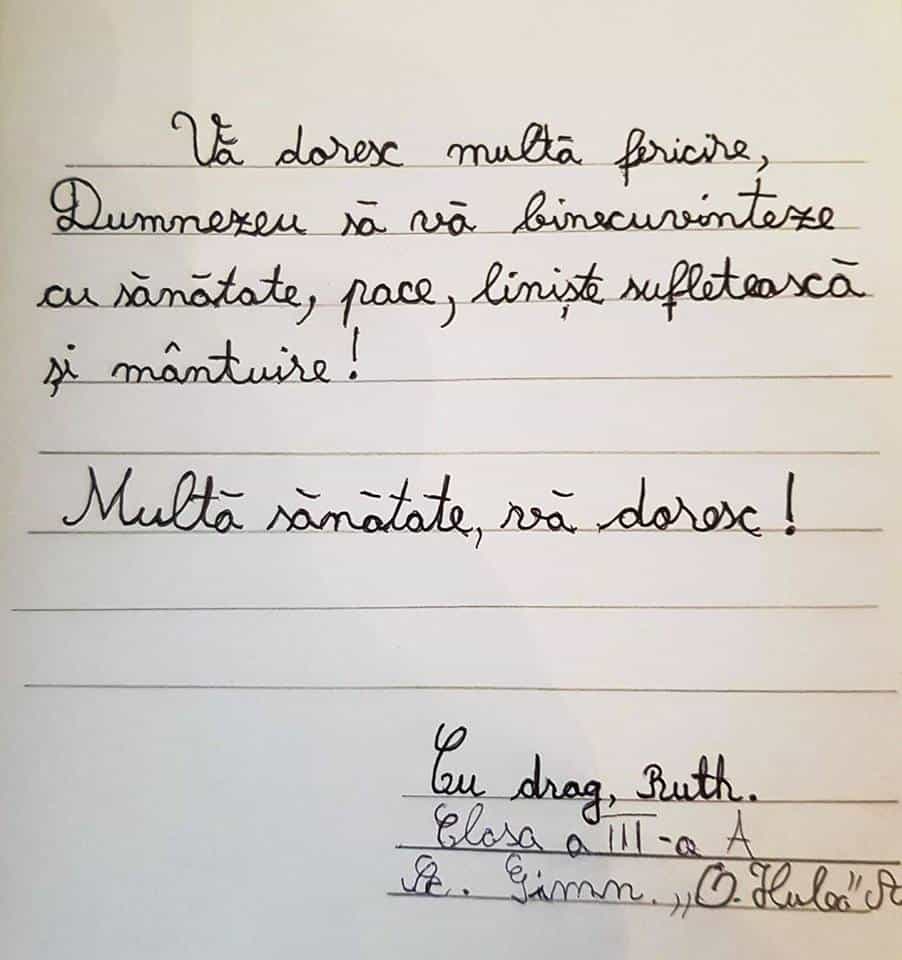 Vă doresc multă fericire,
Dumnezeu să vă binecuvinteze
cu sănătate, pace, liniște sufletească
și mântuire!
Multă sănătate, vă doresc!
Cu drag, Ruth.
Clasa a III-a A
Gimn. „O. Hulea”